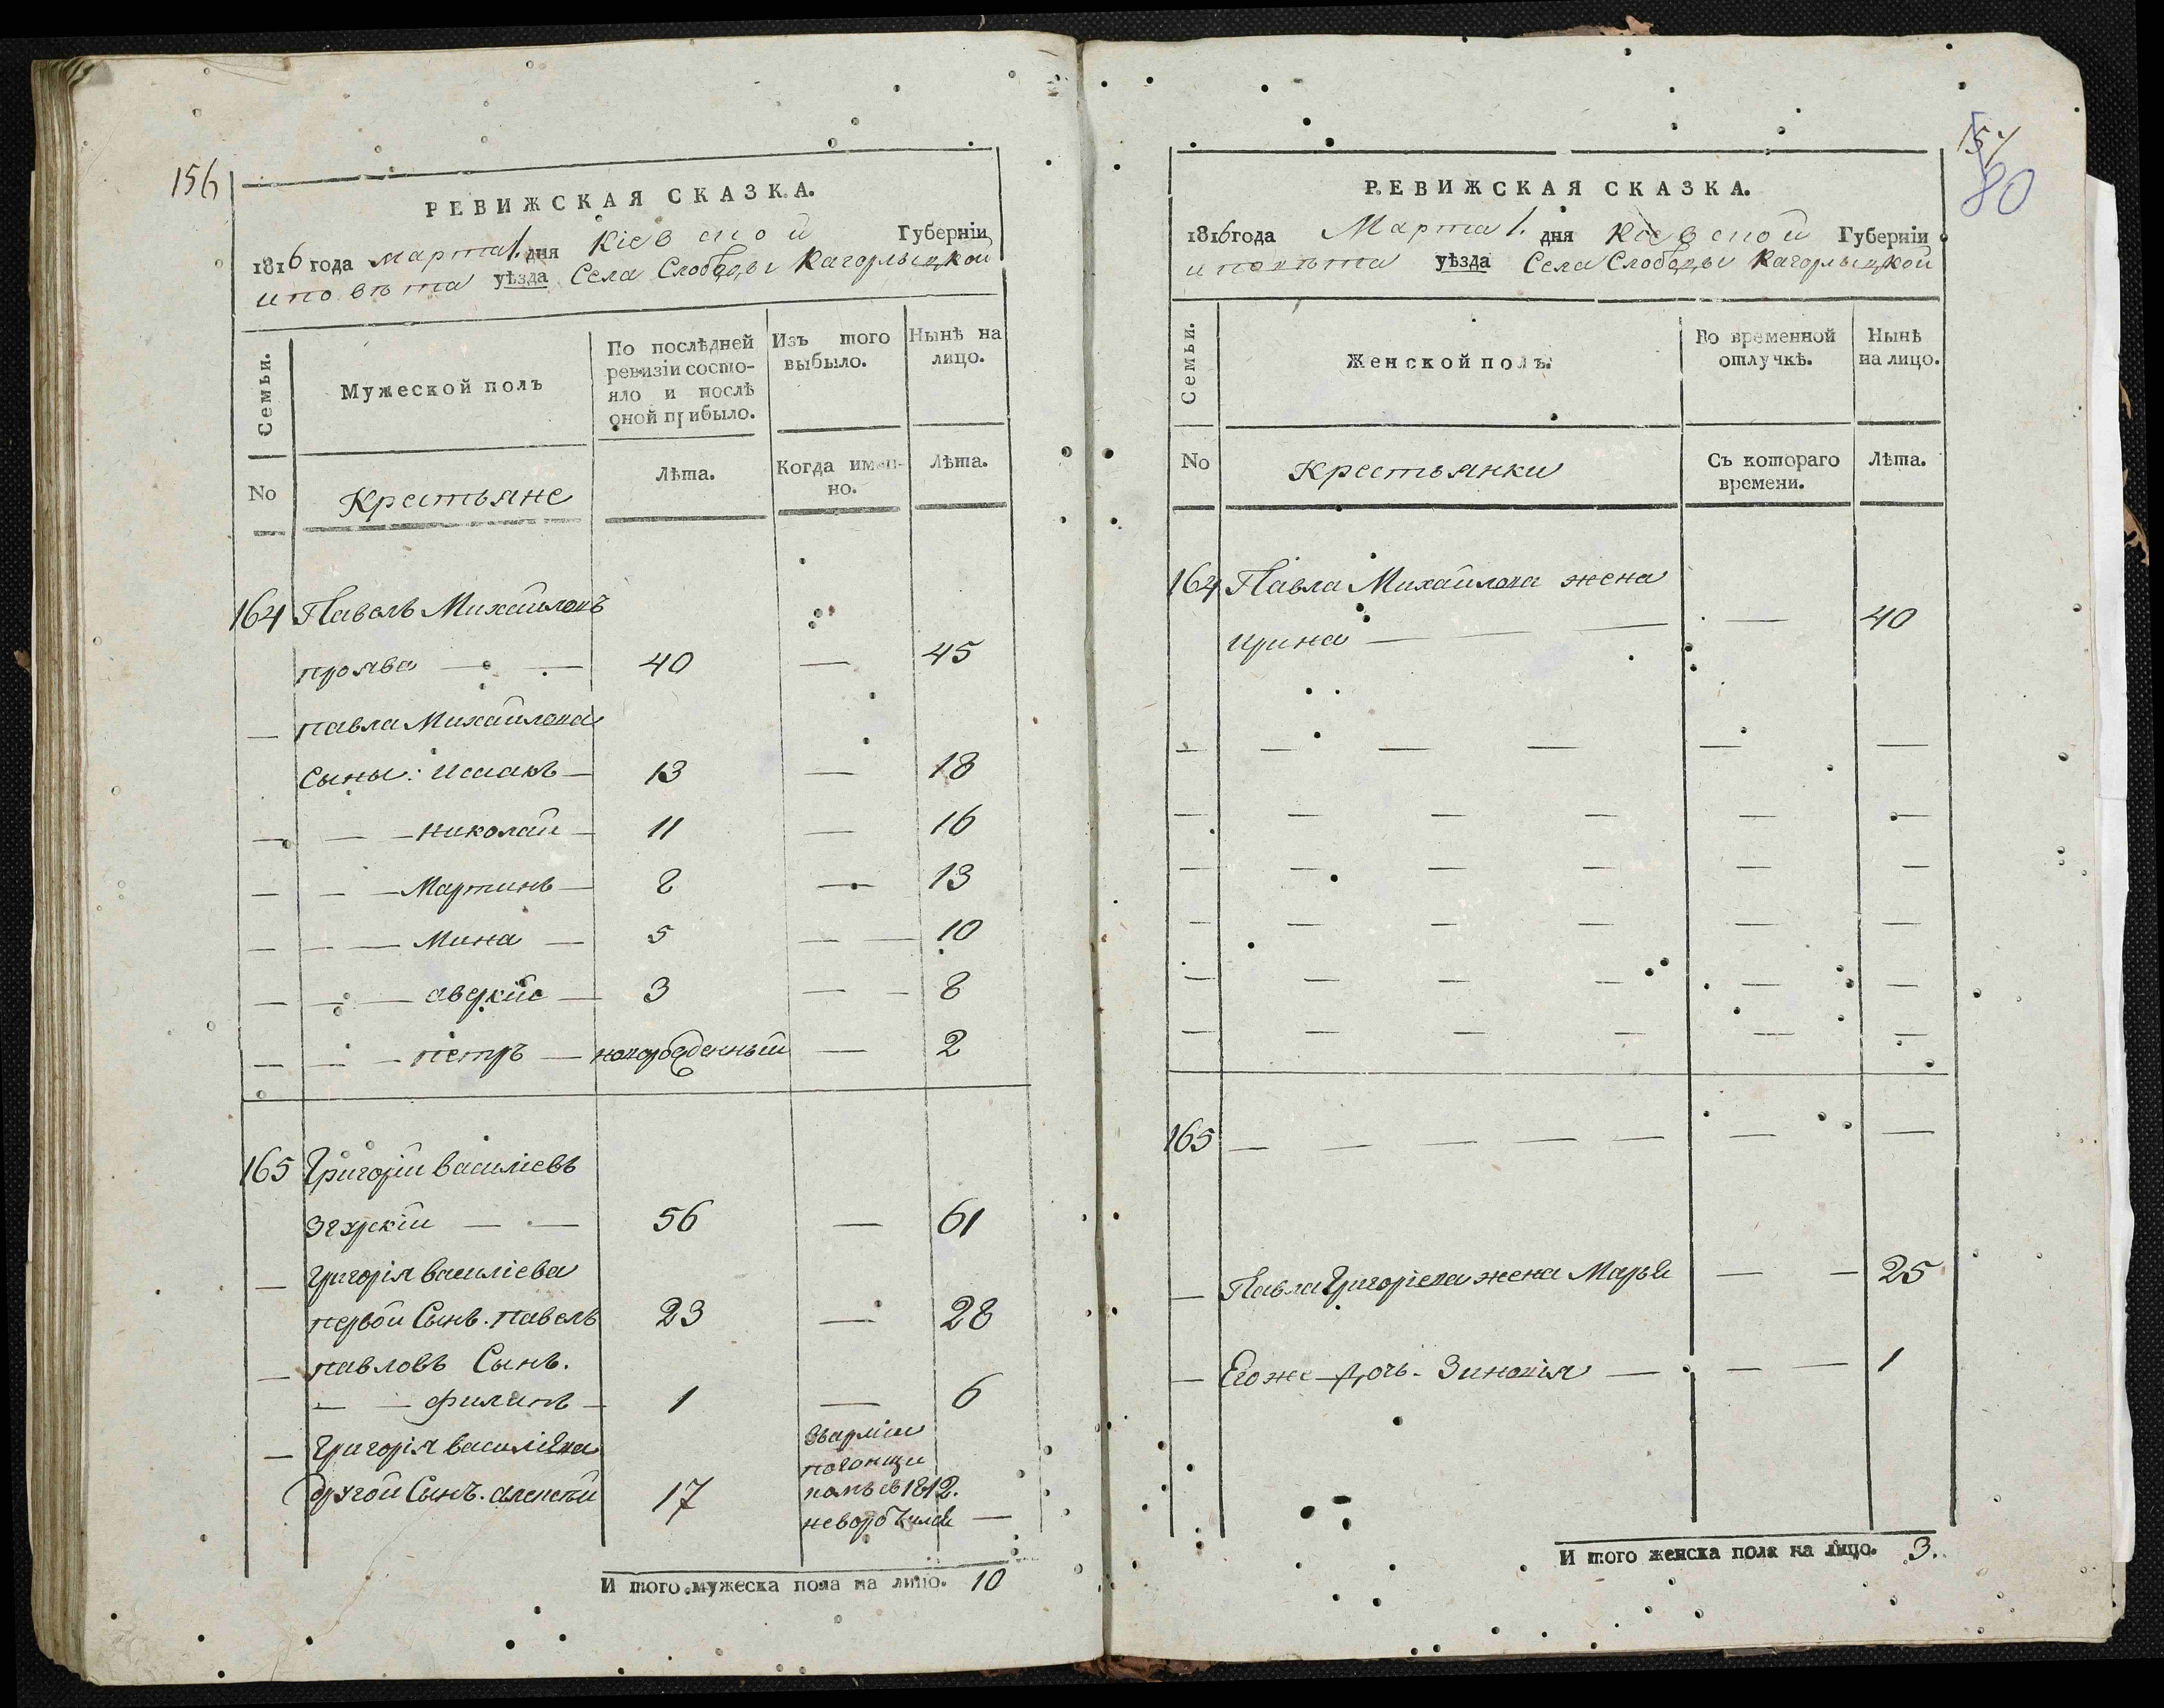 156
РЕВИЖСКАЯ СКАЗКА.
1816 года марта 1. дня Кіевской Губерніи
и повѣта уѣзда Села Слободы Кагорлыцкой
Семьи.
Мужеской полъ
По послѣдней ревизіи состояло и послѣ оной прибыло.
Изъ того выбыло.
Нынѣ на лицо.
No
Крестьяне
Лѣта.
Когда именно.
Лѣта.
164 Павелъ Михайловъ
проява — — 40 — 45
— павла Михайлова
Сыны: Исаакъ — 13 — 18
— — — николай — 11 — 16
— — — Мартинъ — 8 — 13
— — — Мина — 5 — — 10
— — — аверкій — 3 — — 8
— — — петръ — новорожденный — 2
165 Григорій василіевъ
Згурскій — — 56 — 61
— григорія василіева
первой Сынъ. павелъ 23 — 28
— павловъ Сынъ.
— — филипъ — 1 — 6
— григорія василіева
другой Сынъ. алексѣй 17
въ арміи
погонщи
комъ съ 1812.
—
И того мужеска пола на лицо. 10
157
80
РЕВИЖСКАЯ СКАЗКА.
1816 года Марта 1. дня Кіевской Губерніи
и повѣта уѣзда Села Слободы Кагорлыцкой
Семьи.
Женской полъ.
Во временной отлучкѣ.
Нынѣ на лицо.
No
Крестьянки
Съ котораго времени.
Лѣта.
164 Павла Михайлова жена
ирина — — — — 40
— — — — — —
— — — — — —
— — — — — —
— — — — — —
— — — — — —
— — — — — —
165 — — — — — — —
— Павла Григоріева жена Марья — — 25
— Его же — дочь. Зиновія — — — 1
И того женска пола на лицо. 3.